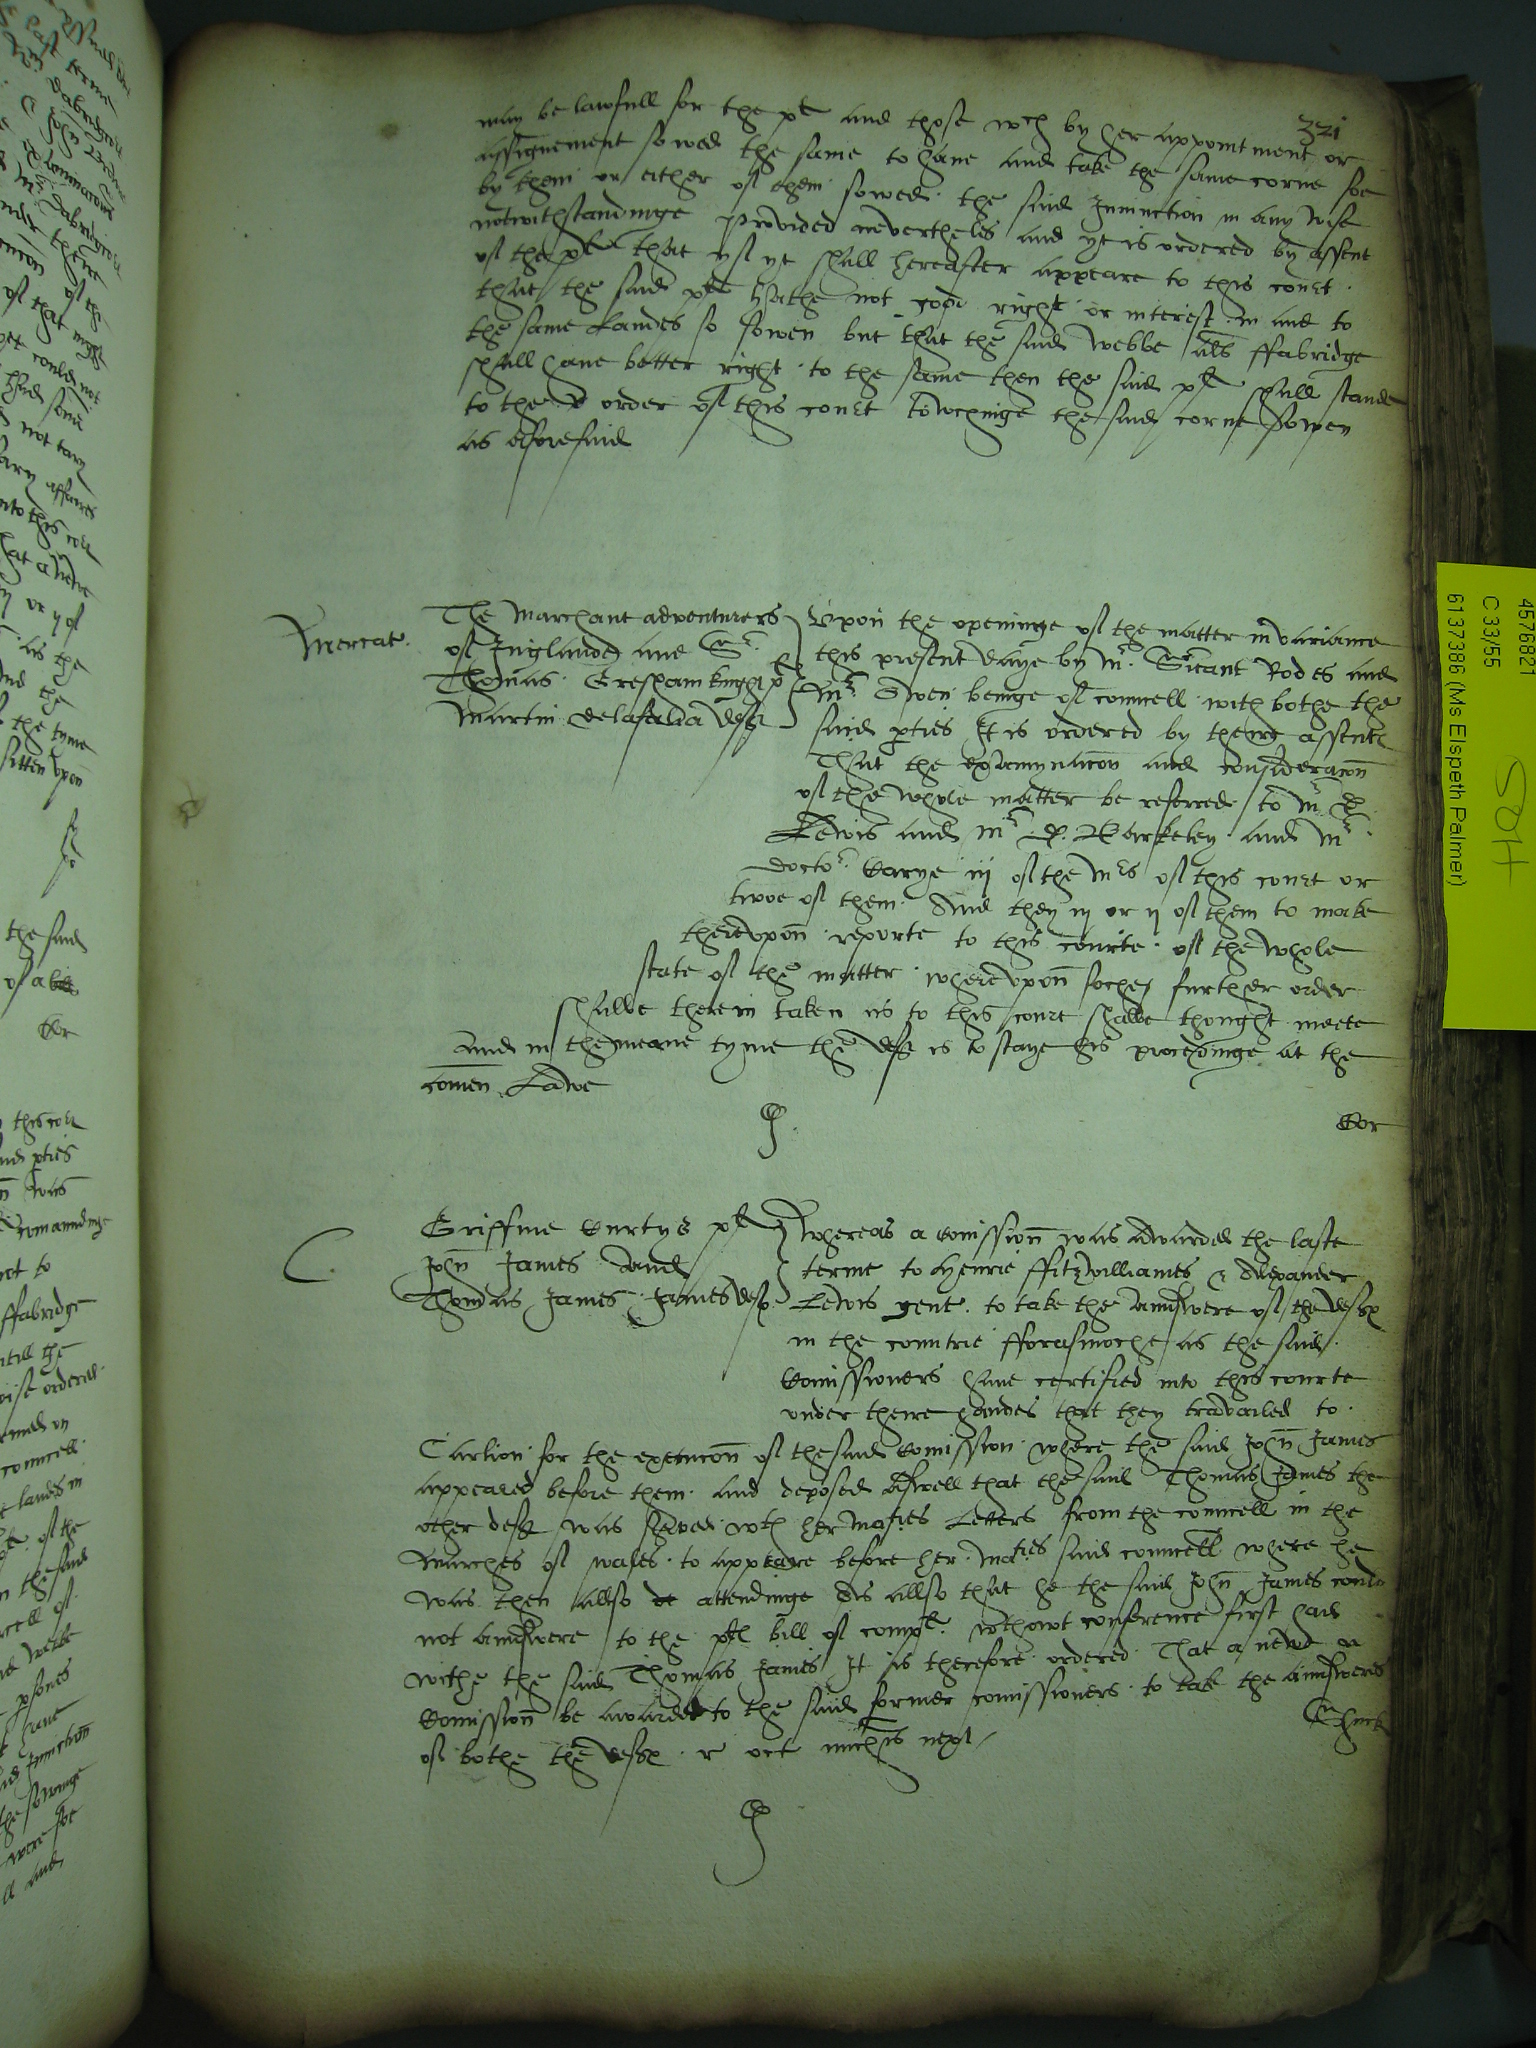 321
may be lawfull for the plt and those wch by her appointment or
assignement sowed the same to have and take the same corne soe
by them or either of them sowed the said Iniunction in any wise
notwithstandinge Provided nevertheles and yt is ordered by assent
of the plt that yf yt shall hereafter appeare to this court
that the said plt hathe not good right or interest in and to
the same Landes so sowen but that the said Webbe als ffabridge
shall have better right to the same then the said plt shall stande
to the order of this court towchinge the said corne sowen
as aforesaid
Mercat.
The Marchant adventurers
of Inglande and Sr
Thomas Gresham knight pl
Martin Delafalia deft
Upon the openinge of the matter in variance
this present daye by Mr Sriant Rodes and
Mr Owen beinge of councell with bothe the
said pties It is ordered by theire assentes
That the examynacon and consideracon
of the whole matter be referred to Mr D.
Lewis and Mr D. Barkeley and Mr
Doctor Carye iij of the Mrs of this court or
twoe of them And they iij or ij of them to make
thereupon reporte to this courte of the whole
state of the matter whereupon soche further order
shalbe therein taken as to this court shalbe thought meete
And in the meane tyme the deft is to staye his procedinge at the
comen Lawe
Cor
C.
Griffine Curtys plt
John James and
Thomas James James deftes
Whereas a Comission was awarded the laste
terme to Henrie ffitzwilliames & Alexander
Lewis gent. to take the Aunswere of the deftes
in the countrie fforasmoche as the said
Comissioners have certified into this courte
under theire handes that they travailed to
Carlion for the execucon of the said Comission where the said John James
appeared before them and deposed Aswell that the said Thomas James the
other deft was served wth her Maties Letters from the councell in the
Marches of Wales to appeare before her Maties said councell where he
was then allso attendinge As allso that he the said John James could
not aunswere to the plt bill of complt wthowt conference first had
withe the said Thomas James It is therefore ordered That a newe
Comission be awarded to the said former comissioners to take the aunsweres
of bothe the deftes r oct michis next